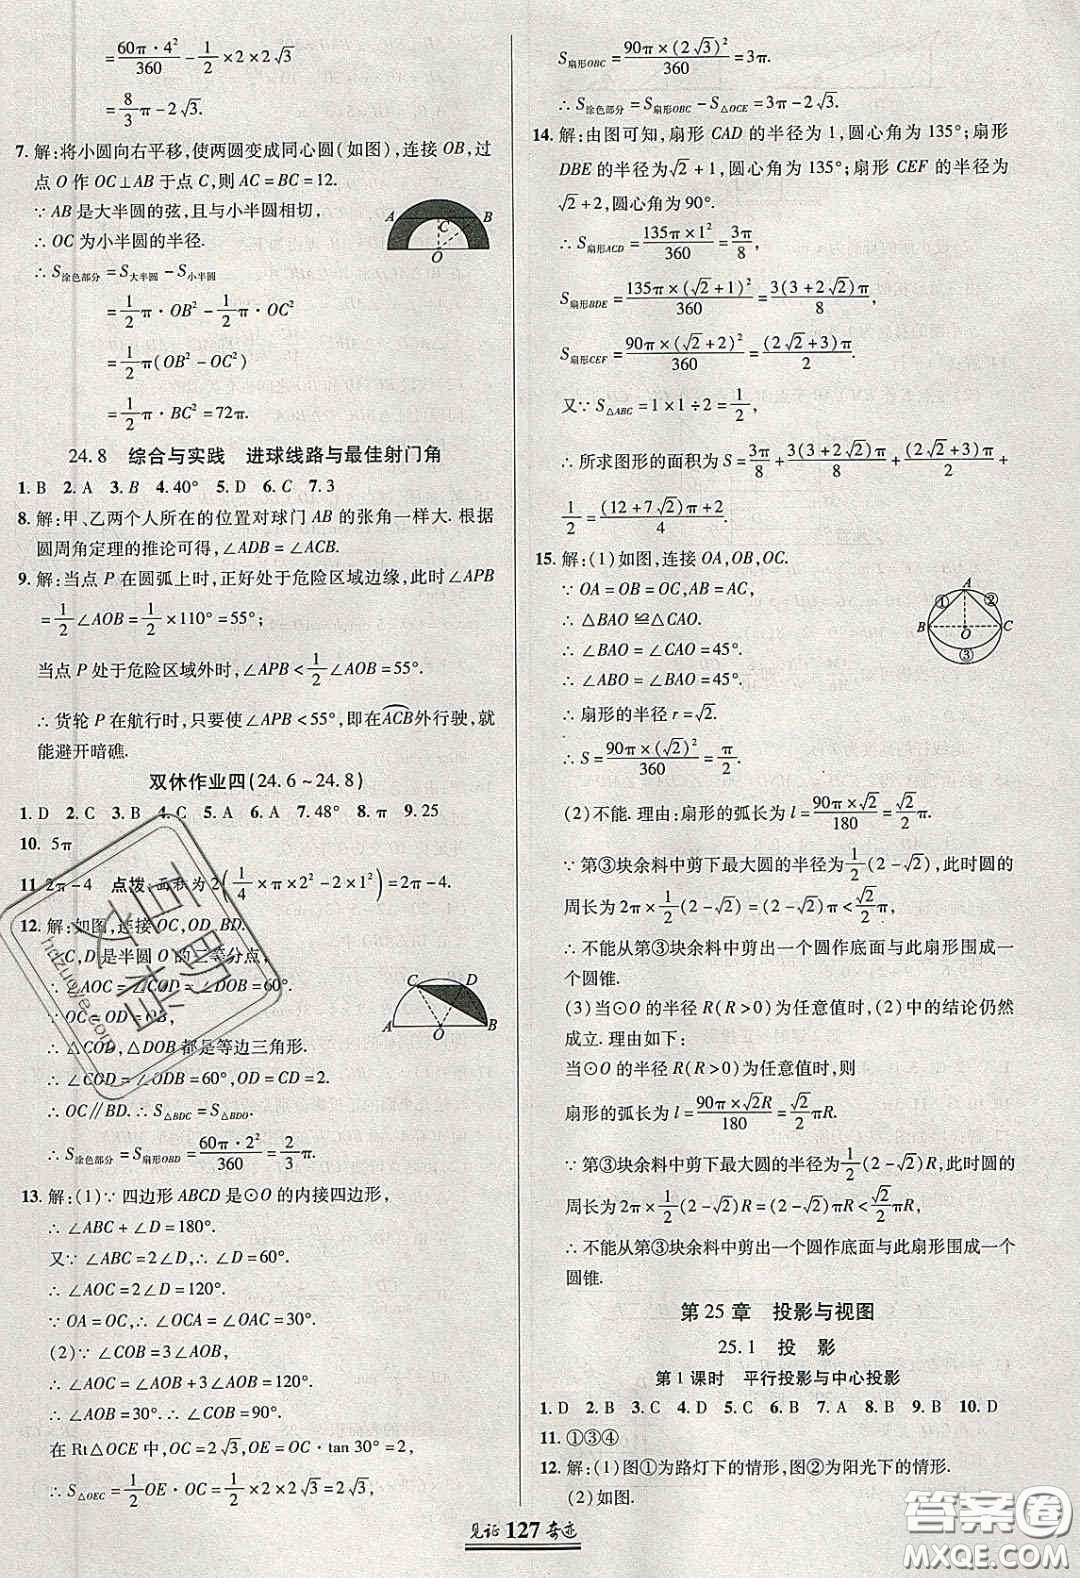 = 60π·4²/360 − 1/2×2×2√3
= 8/3 π−2√3.
7. 解:将小圆向右平移,使两圆变成同心圆(如图),连接 OB,过
点 O 作 OC⊥AB 于点 C,则 AC=BC=12.
∵ AB 是大半圆的弦,且与小半圆相切,
∴ OC 为小半圆的半径.
∴ S涂色部分=S大半圆−S小半圆
= 1/2 π·OB²− 1/2 π·OC²
= 1/2 π(OB²−OC²)
= 1/2 π·BC²=72π.
A C B
O
24.8 综合与实践 进球线路与最佳射门角
1. B 2. A 3. B 4. 40° 5. D 6. C 7. 3
8. 解:甲、乙两个人所在的位置对球门 AB 的张角一样大. 根据
圆周角定理的推论可得,∠ADB=∠ACB.
9. 解:当点 P 在圆弧上时,正好处于危险区域边缘,此时∠APB
= 1/2 ∠AOB= 1/2 ×110°=55°;
当点 P 处于危险区域外时,∠APB< 1/2 ∠AOB=55°.
∴ 货轮 P 在航行时,只要使∠APB<55°,即在⌒ACB外行驶,就
能避开暗礁.
双休作业四(24.6~24.8)
1. D 2. C 3. B 4. C 5. A 6. A 7. 48° 8. π 9. 25
10. 5π
11. 2π−4 点拨:面积为 2(1/4 ×π×2²−2×1²)=2π−4.
12. 解:如图,连接 OC,OD,BD.
∵ C,D 是半圆 O 的三等分点,
∴ ∠AOC=∠COD=∠DOB=60°.
∵ OC=OD=OB,
∴ △COD,△DOB 都是等边三角形.
∴ ∠COD=∠ODB=60°,OD=CD=2.
∴ OC∥BD. ∴ S△BDC=S△BDO.
∴ S涂色部分=S扇形OBD= 60π·2²/360 = 2/3 π.
C D
A O B
13. 解:(1)∵ 四边形 ABCD 是⊙O 的内接四边形,
∴ ∠ABC+∠D=180°.
又∵ ∠ABC=2∠D,∴ ∠D=60°.
∴ ∠AOC=2∠D=120°.
∵ OA=OC,∴ ∠OCA=∠OAC=30°.
(2)∵ ∠COB=3∠AOB,
∴ ∠AOC=∠AOB+3∠AOB=120°.
∴ ∠AOB=30°.∴ ∠COB=90°.
在 Rt△OCE 中,OC=2√3,OE=OC·tan 30°=2,
∴ S△OEC= 1/2 OE·OC= 1/2 ×2×2√3=2√3,
S扇形OBC= 90π×(2√3)²/360 =3π.
∴ S涂色部分=S扇形OBC−S△OCE=3π−2√3.
14. 解:由图可知,扇形 CAD 的半径为 1,圆心角为 135°;扇形
DBE 的半径为√2+1,圆心角为 135°;扇形 CEF 的半径为
√2+2,圆心角为 90°.
∴ S扇形ACD= 135π×1²/360 = 3π/8,
S扇形BDE= 135π×(√2+1)²/360 = 3(3+2√2)π/8,
S扇形CEF= 90π×(√2+2)²/360 = (2√2+3)π/2.
又∵ S△ABC=1×1÷2= 1/2,
∴ 所求图形的面积为 S= 3π/8 + 3(3+2√2)π/8 + (2√2+3)π/2 +
1/2 = (12+7√2)π+2/4.
15. 解:(1)如图,连接 OA,OB,OC.
∵ OA=OB=OC,AB=AC,
∴ △BAO≌△CAO.
∴ ∠BAO=∠CAO=45°.
∴ ∠ABO=∠BAO=45°.
∴ 扇形的半径 r=√2.
∴ S= 90π×(√2)²/360 = π/2.
A
① ②
B O C
③
(2)不能. 理由:扇形的弧长为 l= 90π×√2/180 = √2/2 π.
∵ 第③块余料中剪下最大圆的半径为 1/2 (2−√2),此时圆的
周长为 2π× 1/2 ×(2−√2)=(2−√2)π< √2/2 π,
∴ 不能从第③块余料中剪出一个圆作底面与此扇形围成一
个圆锥.
(3)当⊙O 的半径 R(R>0)为任意值时,(2)中的结论仍然
成立. 理由如下:
当⊙O 的半径 R(R>0)为任意值时,则
扇形的弧长为 l= 90π×√2R/180 = √2/2 πR.
∵ 第③块余料中剪下最大圆的半径为 1/2 (2−√2)R,此时圆的
周长为 2π× 1/2 (2−√2)R=(2−√2)πR< √2/2 πR,
∴ 不能从第③块余料中剪出一个圆作底面与此扇形围成一个
圆锥.
第 25 章 投影与视图
25.1 投 影
第 1 课时 平行投影与中心投影
1. D 2. B 3. C 4. D 5. D 6. A 7. A 8. B 9. B 10. D
11. ①③④
12. 解:(1)图①为路灯下的情形,图②为阳光下的情形.
(2)如图.
见证 127 奇迹
答案圈
MXQE.COM